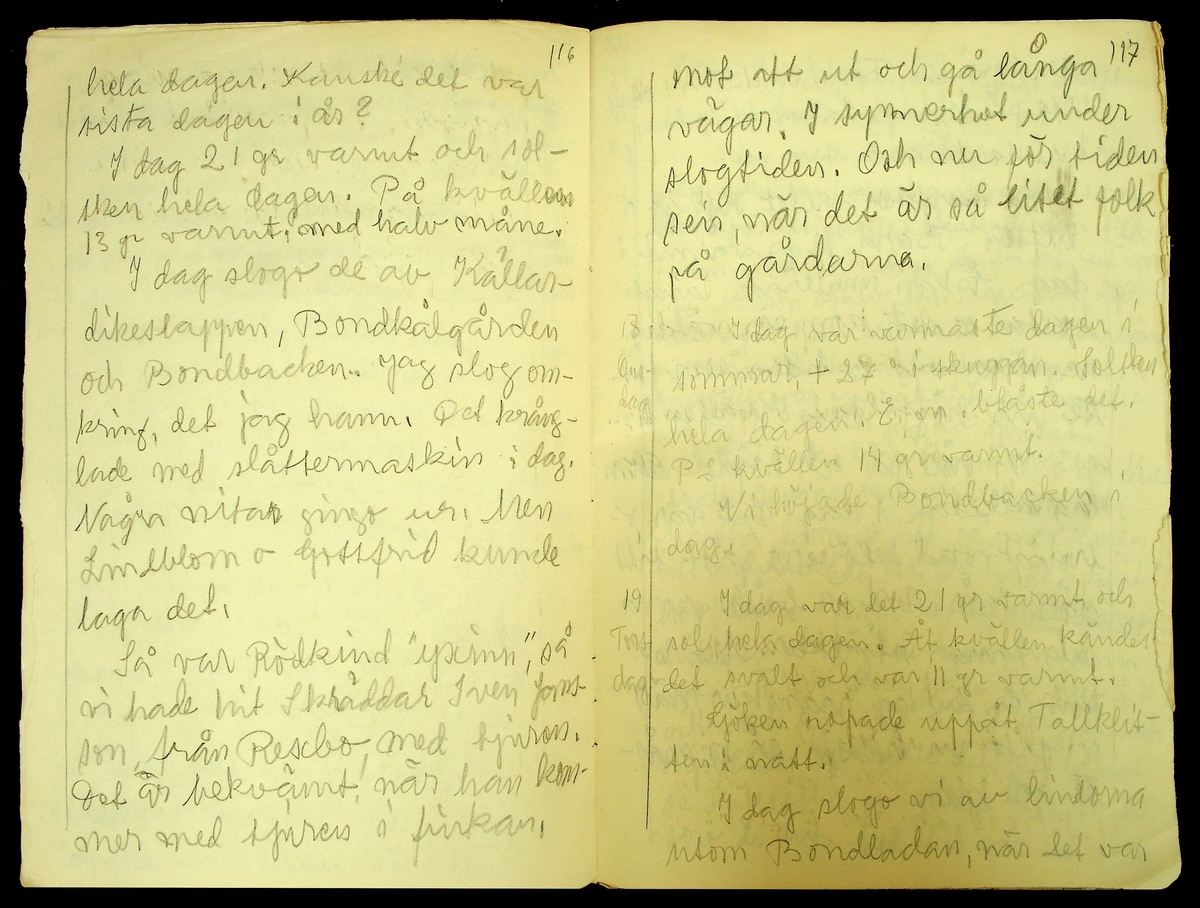 116
hela dagen. Kanske det var
sista dagen i år?
I dag 21 gr varmt och sol-
sken hela dagen. På kvällen
13 gr varmt, med halv måne.
I dag slogo de av Källar-
dikeslappen, Bondkålgården
och Bondbacken. Jag slog om-
kring, det jag hann. Det kräng-
lade med slåttermaskin i dag.
Några nitar gingo ur. Men
Lindblom o Gottfrid kunde
laga det.
Så var Rödkind "yxinn", så
vi hade hit Skräddar Sven Jons-
son, från Rexbo, med tjuren.
Det är bekvämt, när han kom-
mer med tjuren i finkan,
117
mot att ut och gå långa
vägar. I synnerhet under
slogtiden. Och nu för tiden
sen, när det är så litet folk
på gårdarna.
18 I dag var varmaste dagen i
Ons- sommar, + 27° i skuggan. Solsken
dag hela dagen. E. m. blåste det.
På kvällen 14 gr varmt.
Vi höjade Bondbacken i
dag.
19 I dag var det 21 gr varmt och
Tors- sol hela dagen. Åt kvällen kändes
dag det svalt och var 11 gr varmt.
Göken ropade uppåt Tallklit-
ten i natt.
I dag slogo vi av lindorna
utom Bondladan, när det var